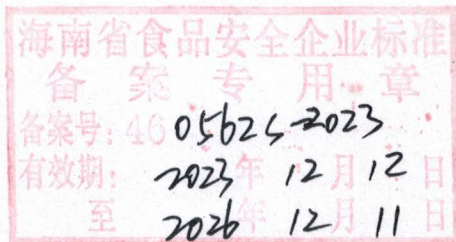 海南省食品安全企业标准
备案专用章
备案号：46 0562S-2023
有效期： 2023年 12月 12日
至 2026年 12月 11日